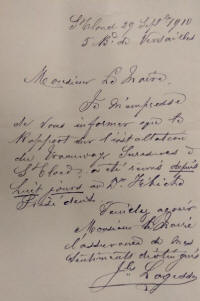 St Cloud 29 Septbre 1910
5 Bd de Versailles
Monsieur Le Maire.
Je m'empresse
de vous informer que le
Rapport sur l'installation
du Tramway Suresnes à
St Cloud, a été remis depuis
huit jours au Dr
Président
Veuillez agréer
Monsieur Le Maire
l'assurance de mes
sentiments distingués